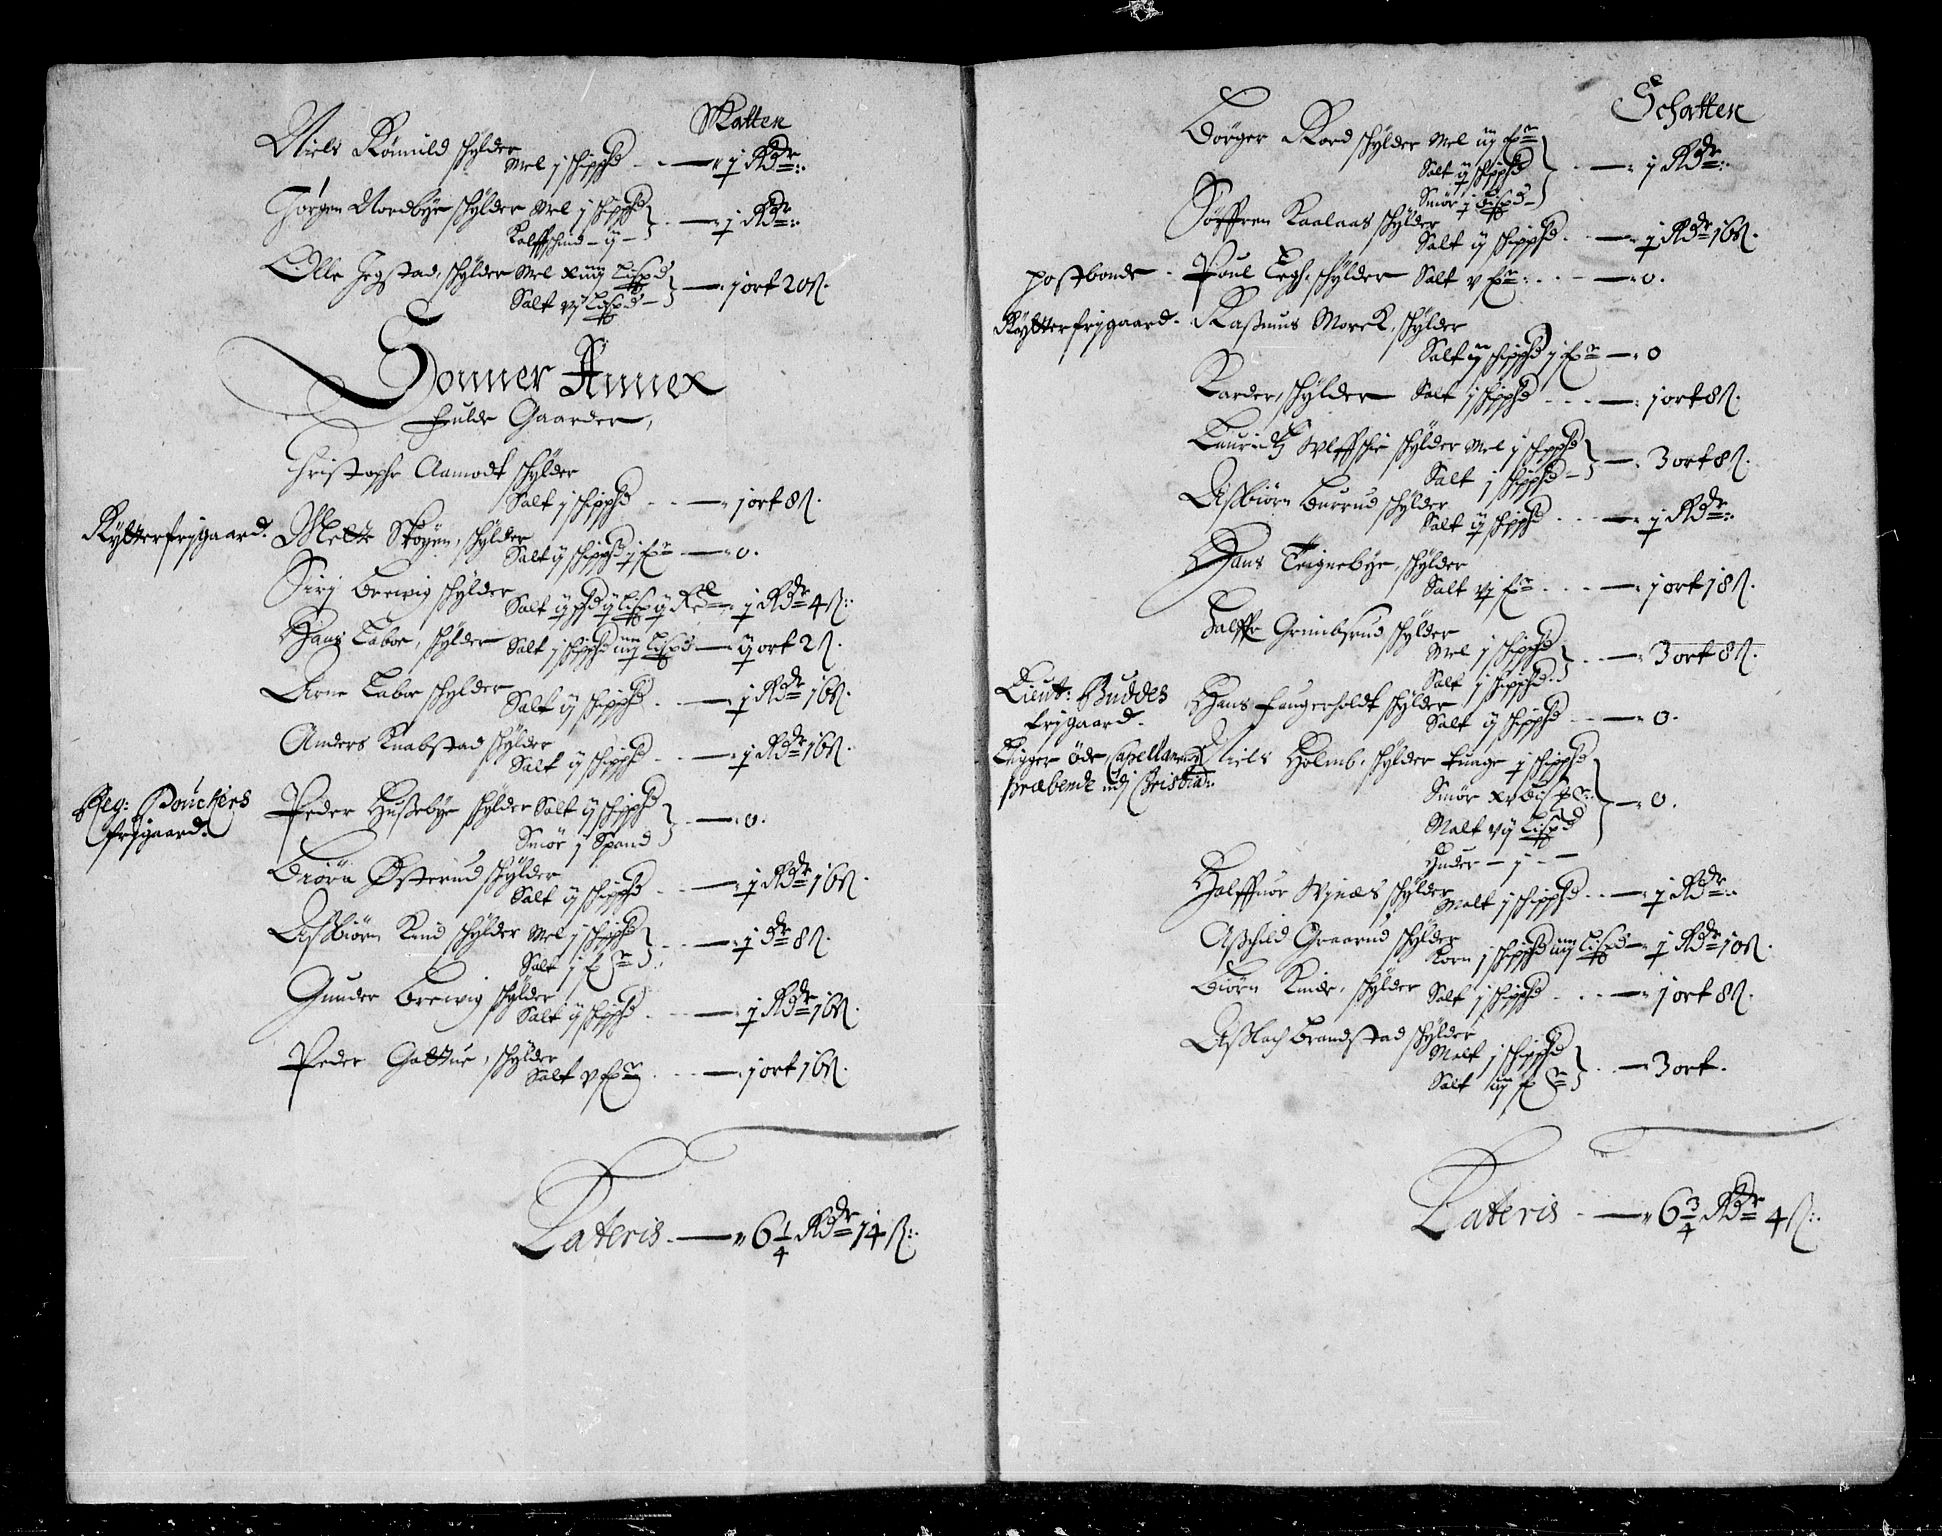 Skatten
Niels Römild schylder
Mel j schippd - - — 1 Rdr:
Jörgen Nordbÿe schylder Mel j schippd
Kalffschind - ij - — 1 Rdr:
Olle Jegstad, schylder Mel xiiij Lispd
Salt vij Lispd — 1 ort 20 ß.
Sonner Annex
Fulde Gaarder,
Christopher Aamodt schylder
Salt j schippd - - — 1 ort 8 ß.
Rÿtterfrijgaard. Mette Skoÿen, schylder
Salt ij schippd j fr — 0.
Sirj Brewig schylder
Salt ij schpd ij Lispd ij — 1 Rdr 4 ß:
Hans Laboe, schylder Salt j schippd iiij Lispd — ij ort 2 ß.
Arne Laboe schylder
Salt ij schippd - — 1 Rdr 16 ß.
Anders Knabstad schylder
Salt ij schippd - — 1 Rdr 16 ß.
Reg: Bouckers
frijgaard.
Peder Hußebÿe schylder Salt ij schippd
Smör j Spand — 0.
Biörn Österud schylder
Salt ij schippd - — 1 Rdr 16 ß.
Aßbiörn Kind schylder Mel j schippd
Salt j fr — 1 Dr 8 ß.
Gunder Brewig schylder
Salt ij schippd - — 1 Rdr 16 ß.
Peder Gattue, schylder
Salt v fr - — 1 ort 16 ß.
Lateris — 6 1/4 Rdr 14 ß:
Schatten
Börger Roed schylder Mel iij fr
Salt ij schippd
Smör j Bispd — 1 Rdr:
Söffren Kaalaas schylder
Salt ij schippd - — 1 Rdr 16 ß.
postbonde - Poul Tegh: schylder Salt v fr: - — 0.
Rÿtterfrijgaard. Raßmus Morck, schylder
Salt iij schippd j fr — 0
Karder, schylder Salt j schippd - — 1 ort 8 ß.
Lauridtz Wlffschie schylder Mel j schippd
Salt j schippd — 3 ort 8 ß.
Aßbiörn Burrud schylder
Salt ij schippd - — 1 Rdr:
Hans Teignebÿe, schylder
Salt vj fr - — 1 ort 18 ß.
Halffr Grimbsrud schylder
Mel j schippd
Salt j schippd — 3 ort 8 ß.
Lieut: Buddes
frijgaard.
Hans Faugerholdt schylder
Salt ij schippd — 0.
Ligger öde, Capellanens
Præbende udj Christia:
Niels Holmb. schylder Tunge j schippd
Smör xv Bispr
Malt vij Lispd
Huder - j - — 0.
Halffuor Wjnæs schylder
Malt j schippd - — 1 Rdr.
Aßchild Graarud schylder
Korn j schippd iiij Lispd — 1 Rdr 10 ß.
Biörn Kinde, schylder Salt j schippd - — 1 ort 8 ß.
Aßlach Brandstad schylder
Malt j schippd
Salt iiij fr — 3 ort.
Lateris - — 6 3/4 Rdr 4 ß: